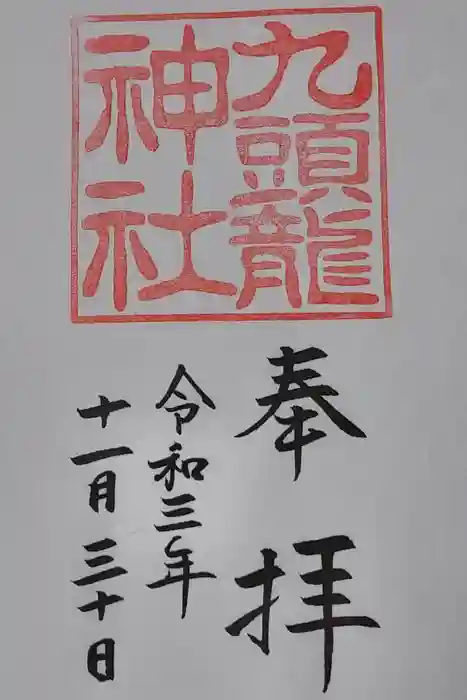 九頭龍
神社
奉拝
令和三年
十一月三十日